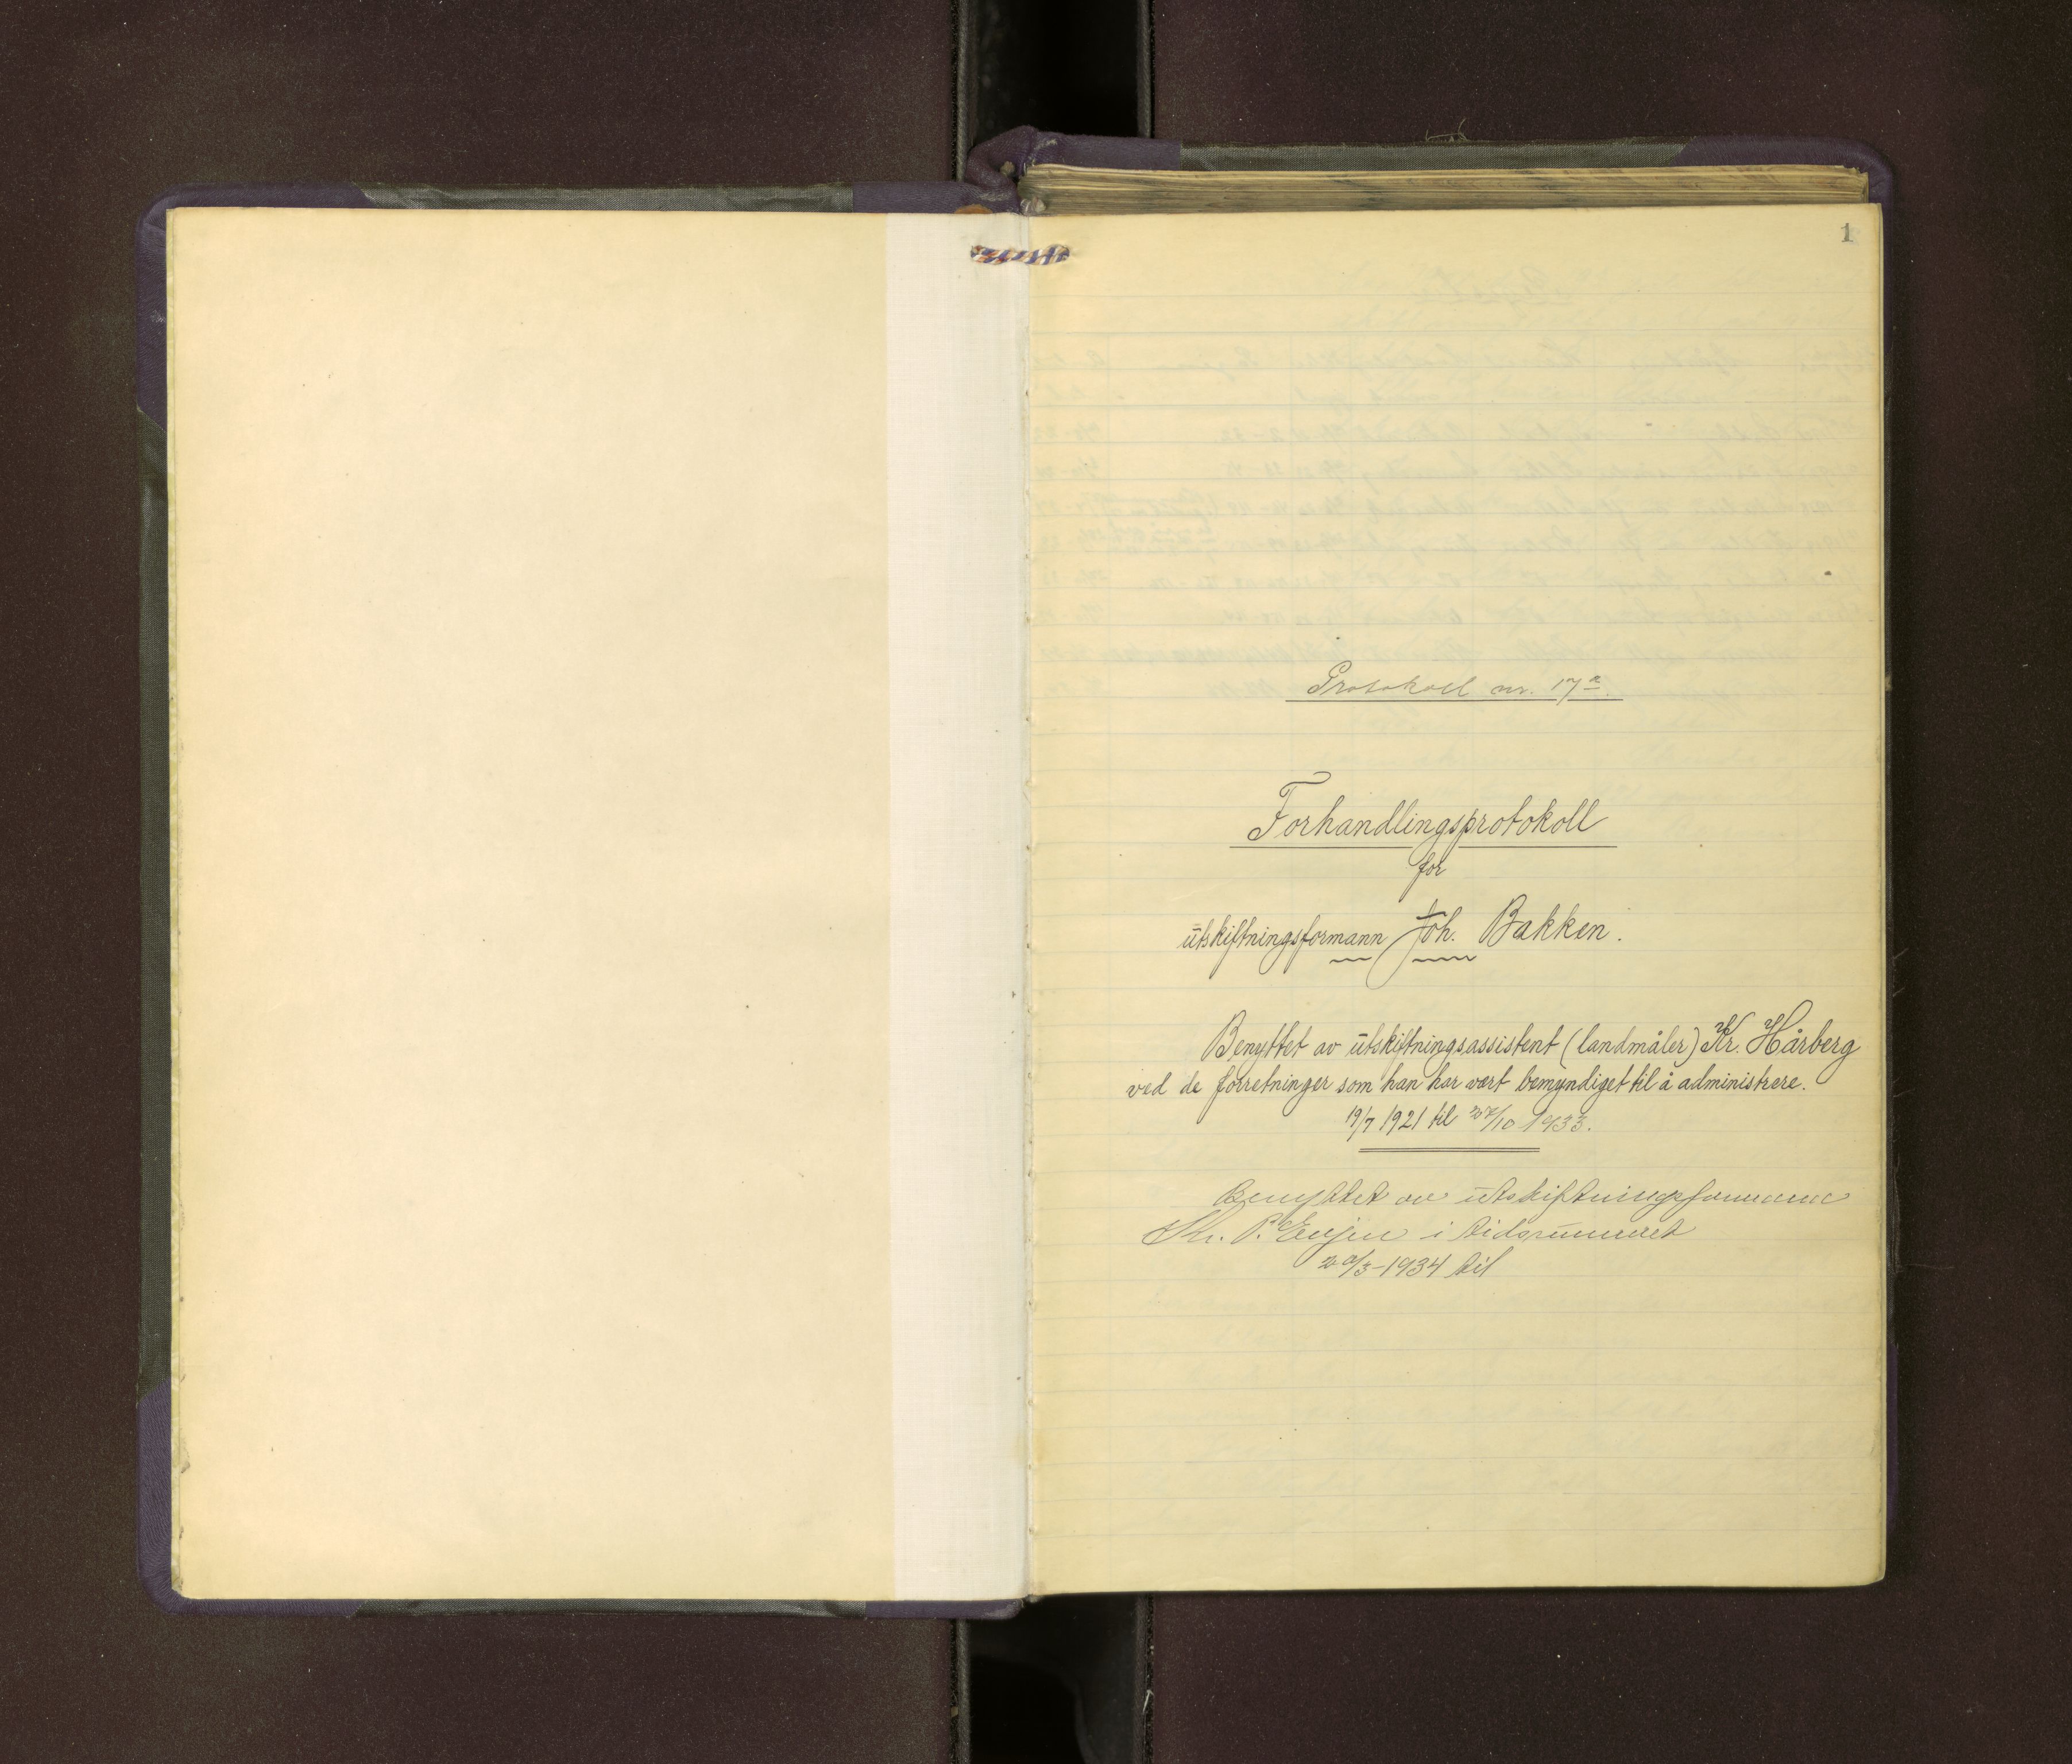 1
Protokoll nr. 17a
Forhandlingsprotokoll
for
utskiftningsformann Joh. Bakken.
Benyttet av utskiftningsassistent (landmåler) Kr. Hårberg
ved de forretninger som han har vært bemyndiget til å administrere.
19/7 1921 til 27/10 1933.
Benyttet av utskiftningsformann
P. Eggen i tidsrummet
20/3-1934 til